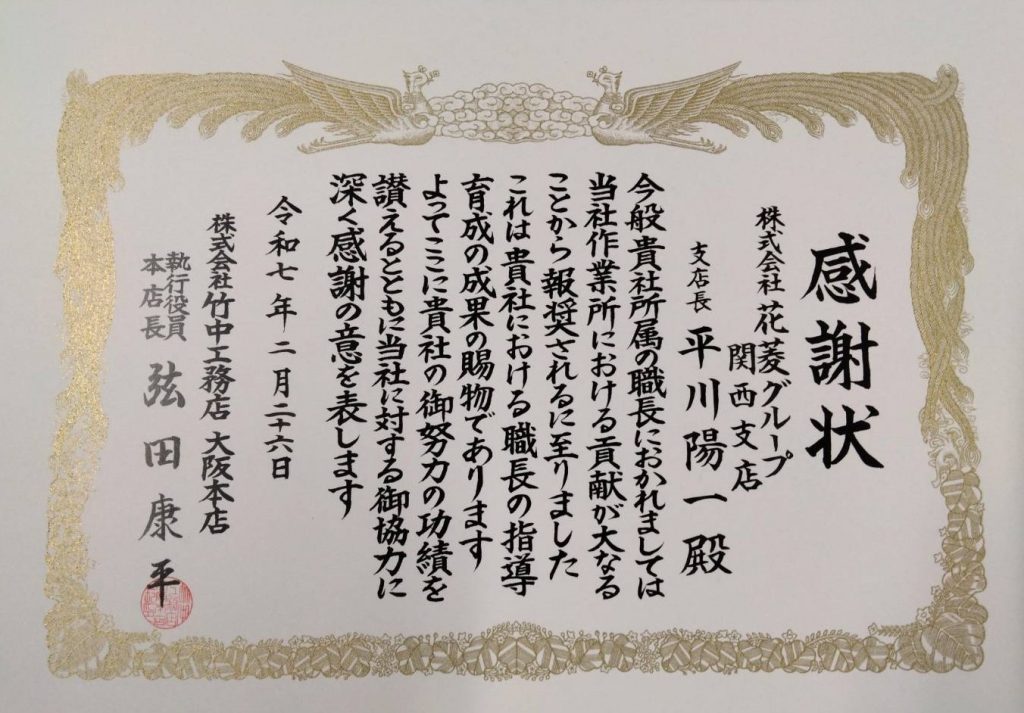 感謝状
株式会社 花菱グループ
関西支店
支店長 平川陽一殿
今般貴社所属の職長におかれましては
当社作業所における貢献が大なる
ことから報奨されるに至りました
これは貴社における職長の指導
育成の成果の賜物であります
よってここに貴社の御努力の功績を
讃えるとともに当社に対する御協力に
深く感謝の意を表します
令和七年二月二十六日
株式会社竹中工務店 大阪本店
執行役員
本店長 弦田康平